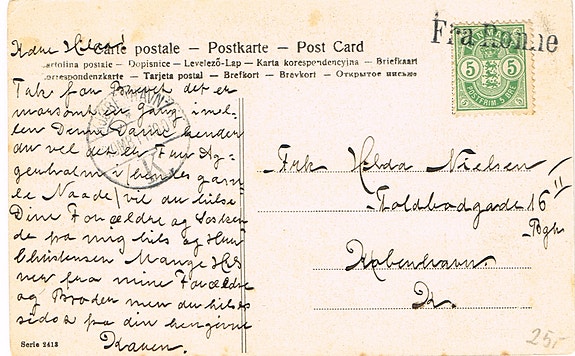 Kære Hilda!
Carte postale – Postkarte – Post Card
Cartolina postale – Dopisnice – Levelező-Lap – Karta korespondencyjna – Briefkaart
Korespondenzkarte – Tarjeta postal – Brefkort – Brevkort – Открытое письмо
Fra Rønne
DANMARK
5 5
POSTFRIM. 5 ØRE
KJØBENHAVN
K
Tak for Brevet det er
morsomt en gang imel-
lem Denne Dame kender
du vel det er Fru Ag-
genholm i hendes gam-
le Naade vil du hilse
Dine Forældre og Søsken
de fra mig hils og Fru
Christensen Mange Hils
ner fra mine Forældre
og Broder men du hilses
sidst fra din hengivne
Karen.
Frk Hilda Nielsen
Toldbodgade 16 II
Bgh
København
K.
Serie 2413
25,-